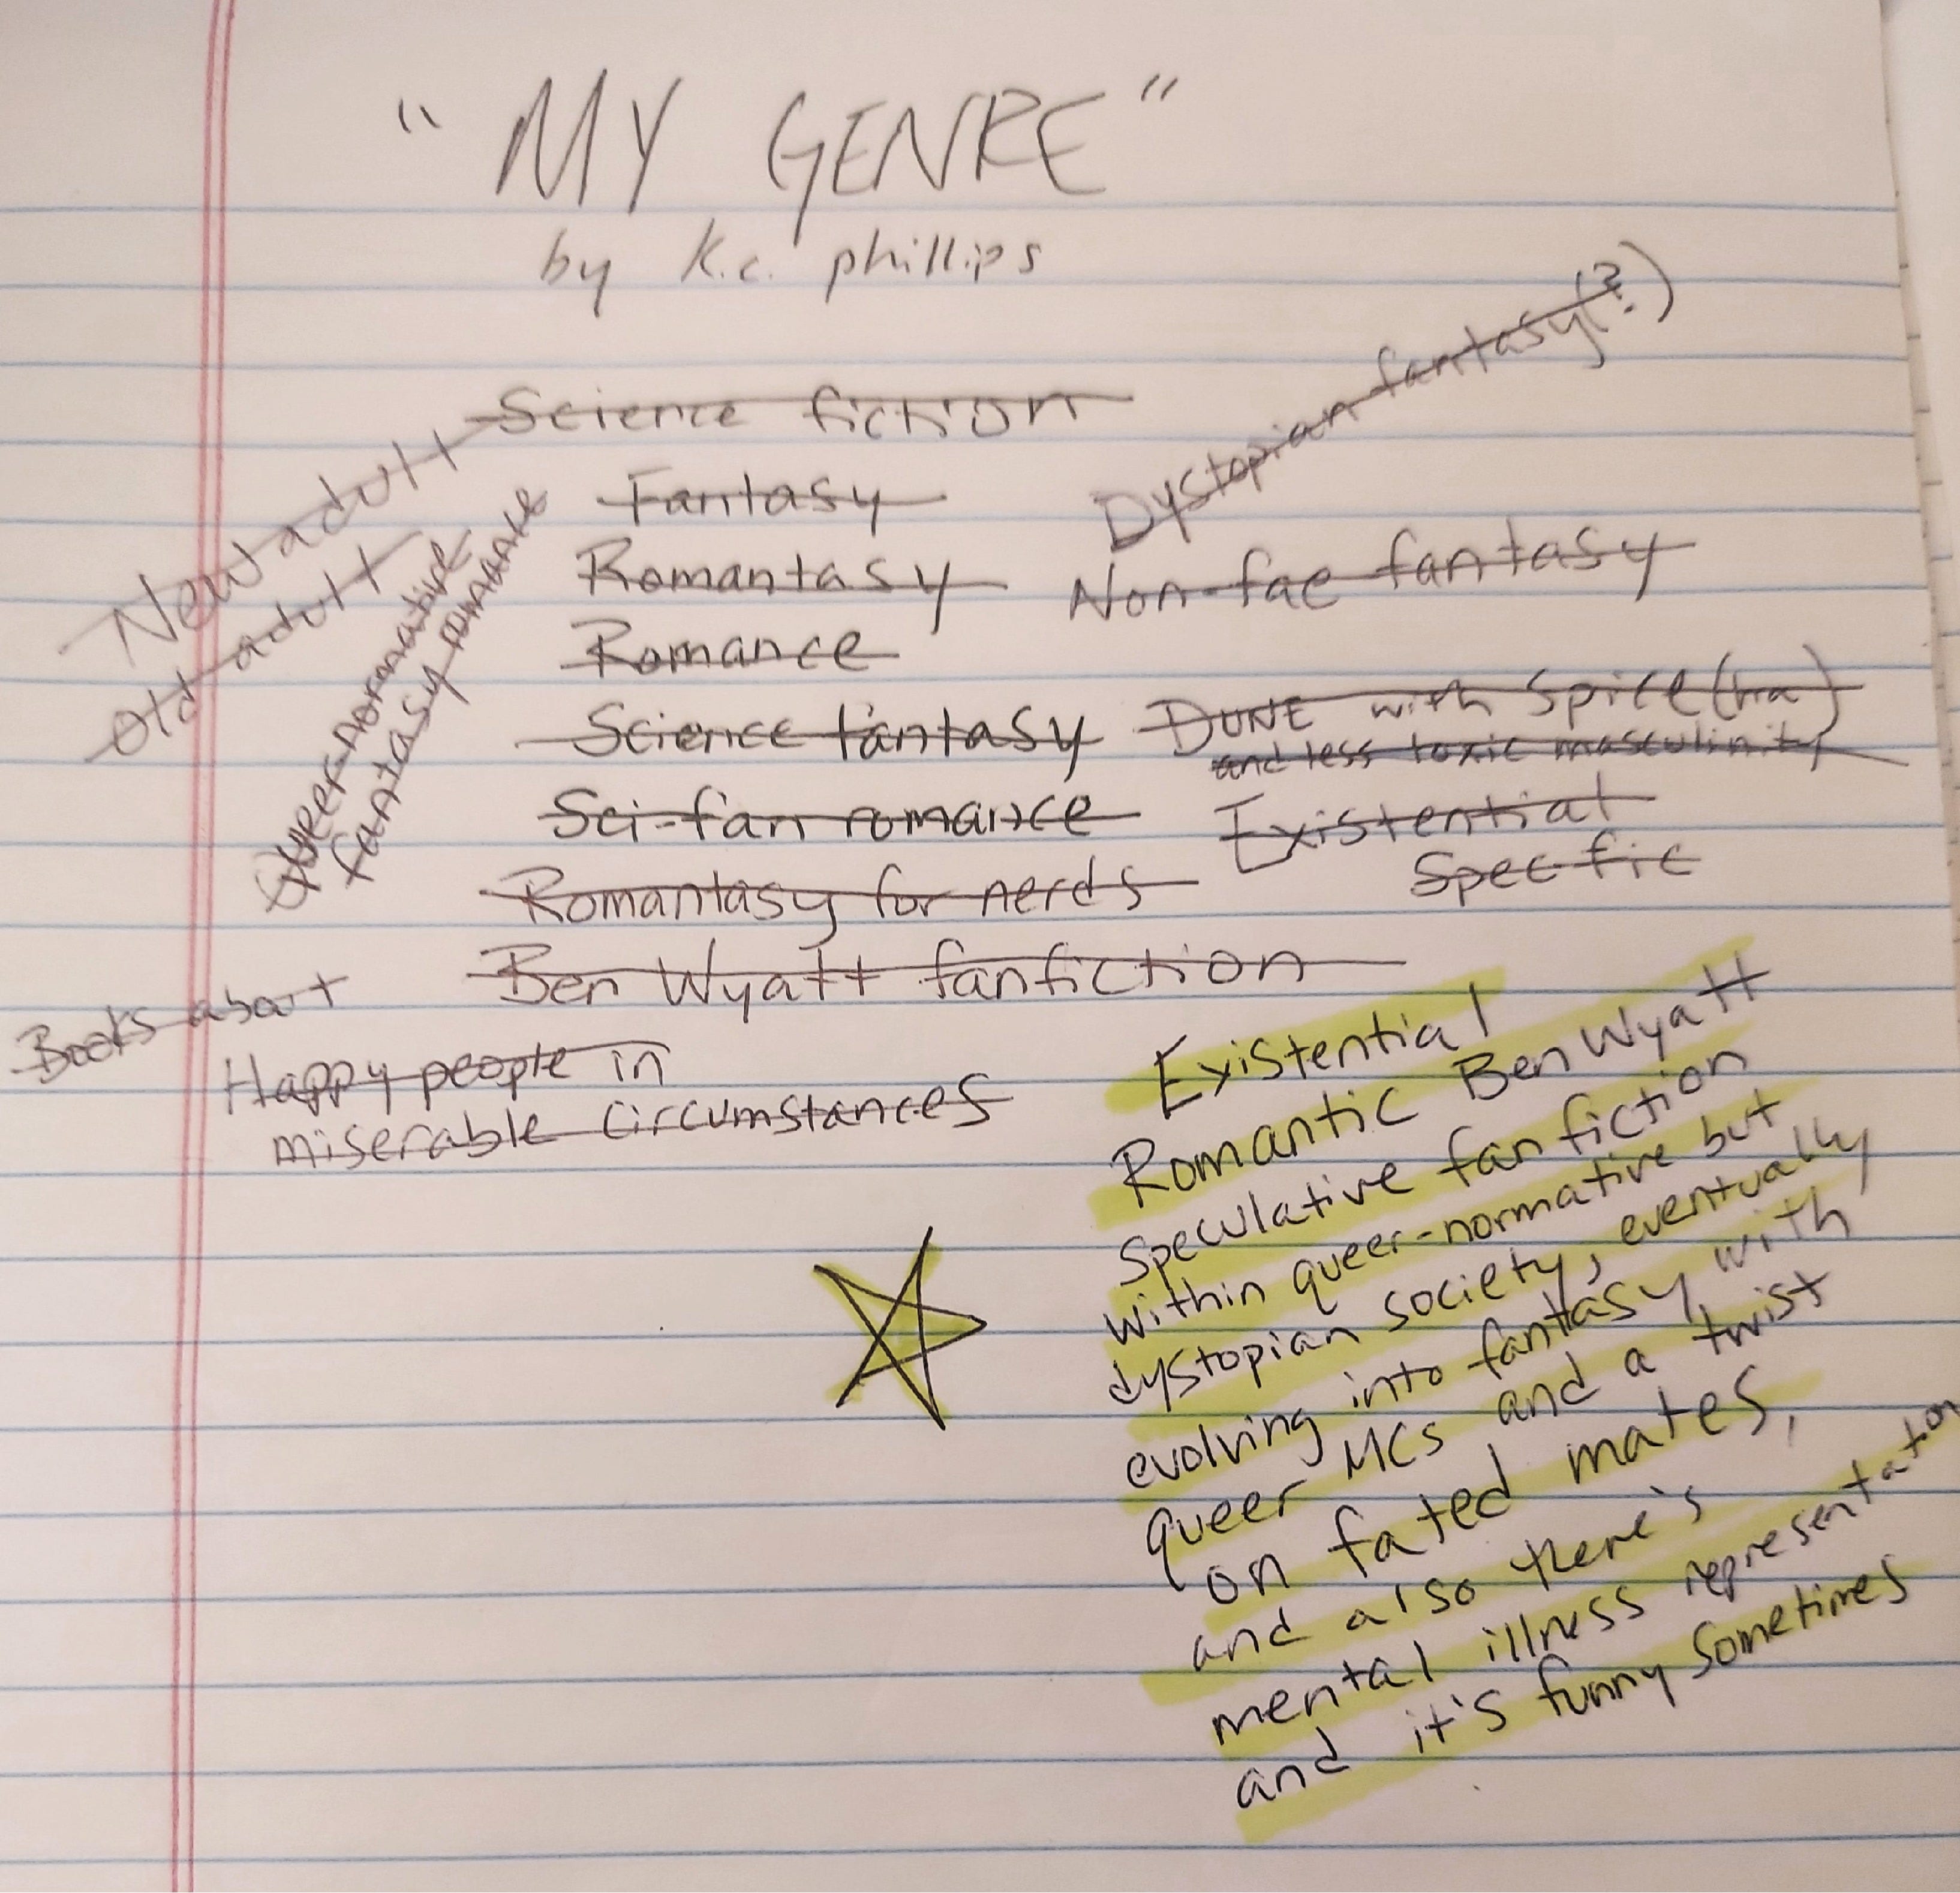 "MY GENRE"
by k.c. phillips
Science fiction
Dystopian fantasy(?)
New adult
Old adult
Queer-normative
fantasy romance
Fantasy
Romantasy
Non-fae fantasy
Romance
Science fantasy
DUNE with Spice (ha)
and less toxic masculinity
Sci-fan romance
Existential
Spec fic
Romantasy for nerds
Ben Wyatt fanfiction
Books about
Happy people in
miserable circumstances
Existential
Romantic Ben Wyatt
Speculative fanfiction
within queer-normative but
dystopian society, eventually
evolving into fantasy with
queer MCs and a twist
on fated mates,
and also there's
mental illness representation
and it's funny sometimes